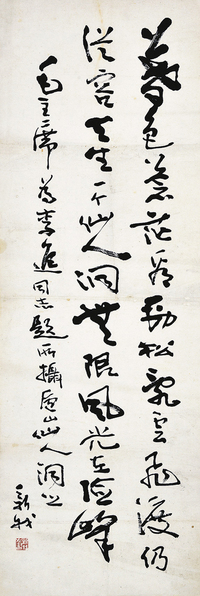 暮色苍茫看劲松乱云飞渡仍
从容天生一个仙人洞无限风光在险峰
毛主席为李进同志题所摄庐山仙人洞照
新我